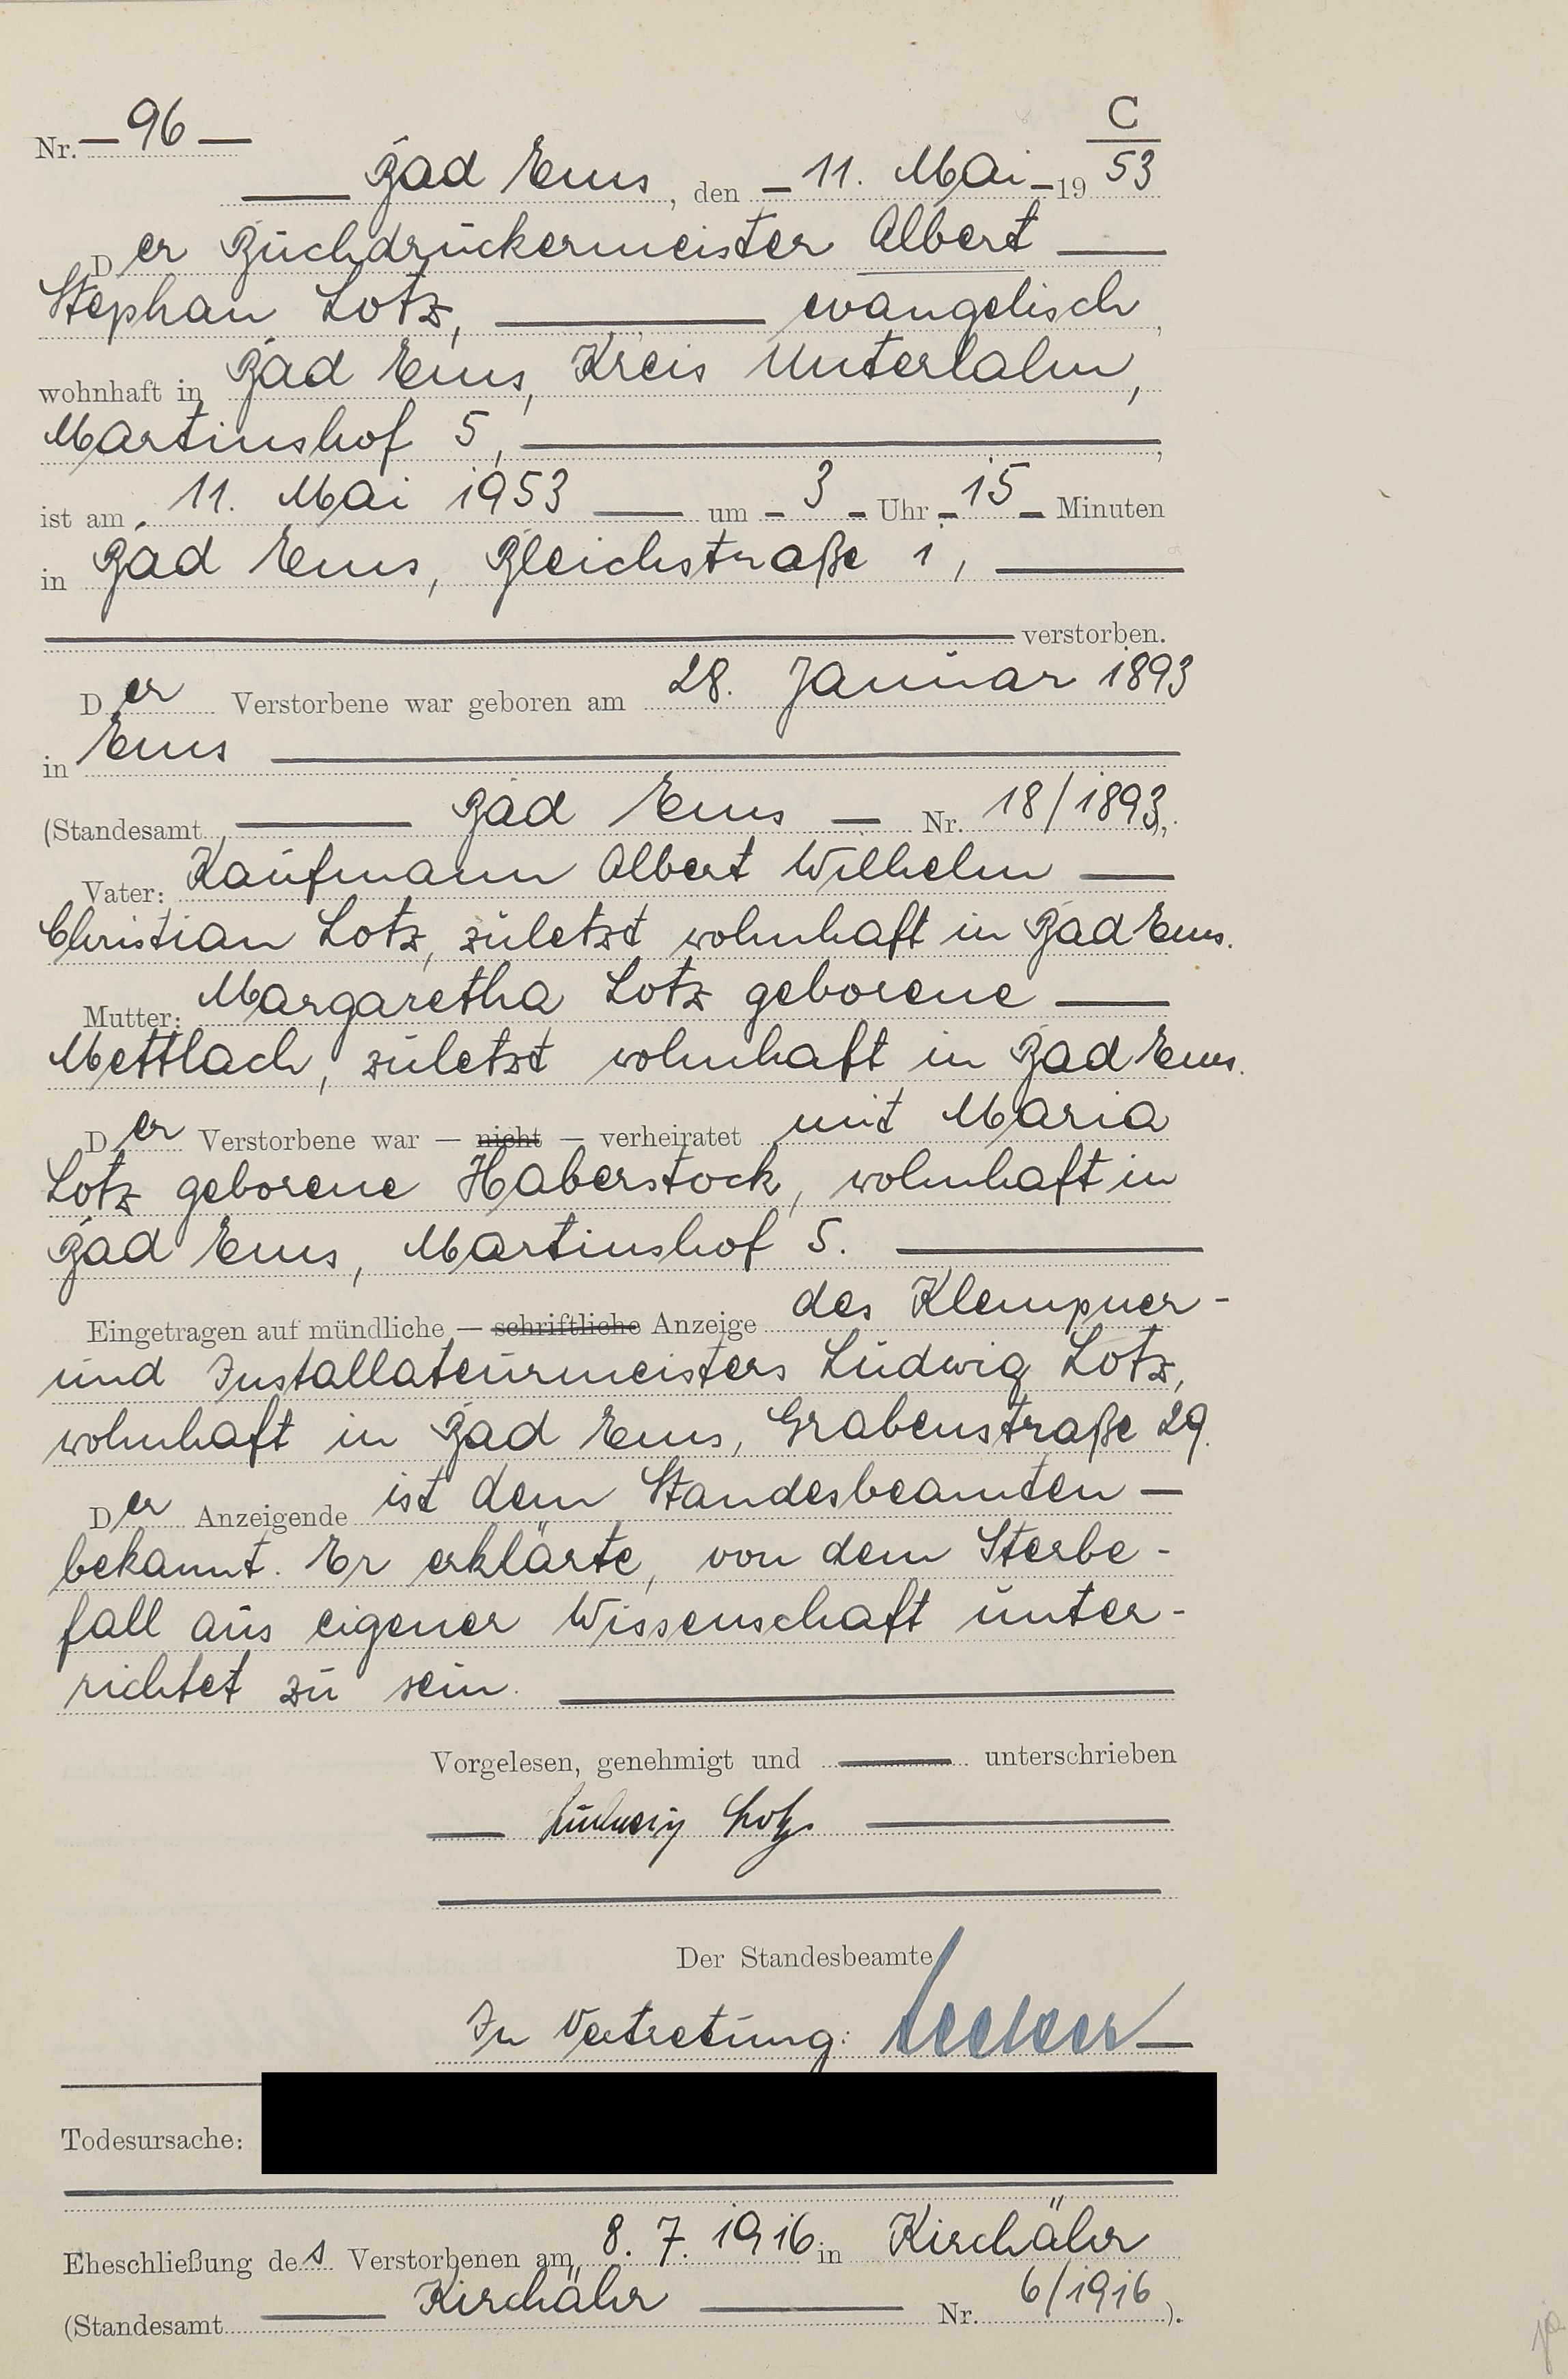 C
Nr. — 96 —
Bad Ems, den — 11. Mai — 19 53
Der Buchdruckermeister Albert
Stephan Lotz, evangelisch,
wohnhaft in Bad Ems, Kreis Unterlahn,
Martinshof 5,
ist am 11. Mai 1953 um — 3 — Uhr — 15 — Minuten
in Bad Ems, Bleichstraße 1,
verstorben.
Der Verstorbene war geboren am 28. Januar 1893
in Ems
(Standesamt Bad Ems — Nr. 18/1893).
Vater: Kaufmann Albert Wilhelm
Christian Lotz, zuletzt wohnhaft in Bad Ems.
Mutter: Margaretha Lotz geborene
Mettlach, zuletzt wohnhaft in Bad Ems.
Der Verstorbene war — nicht — verheiratet mit Maria
Lotz geborene Haberstock, wohnhaft in
Bad Ems, Martinshof 5.
Eingetragen auf mündliche — schriftliche Anzeige des Klempner-
und Installateurmeisters Ludwig Lotz,
wohnhaft in Bad Ems, Grabenstraße 29.
Der Anzeigende ist dem Standesbeamten —
bekannt. Er erklärte, von dem Sterbe-
fall aus eigener Wissenschaft unter-
richtet zu sein.
Vorgelesen, genehmigt und unterschrieben
Ludwig Lotz
Der Standesbeamte
In Vertretung:
Todesursache:
Eheschließung des Verstorbenen am 8. 7. 1916 in Kirchähr
(Standesamt Kirchähr Nr. 6/1916).